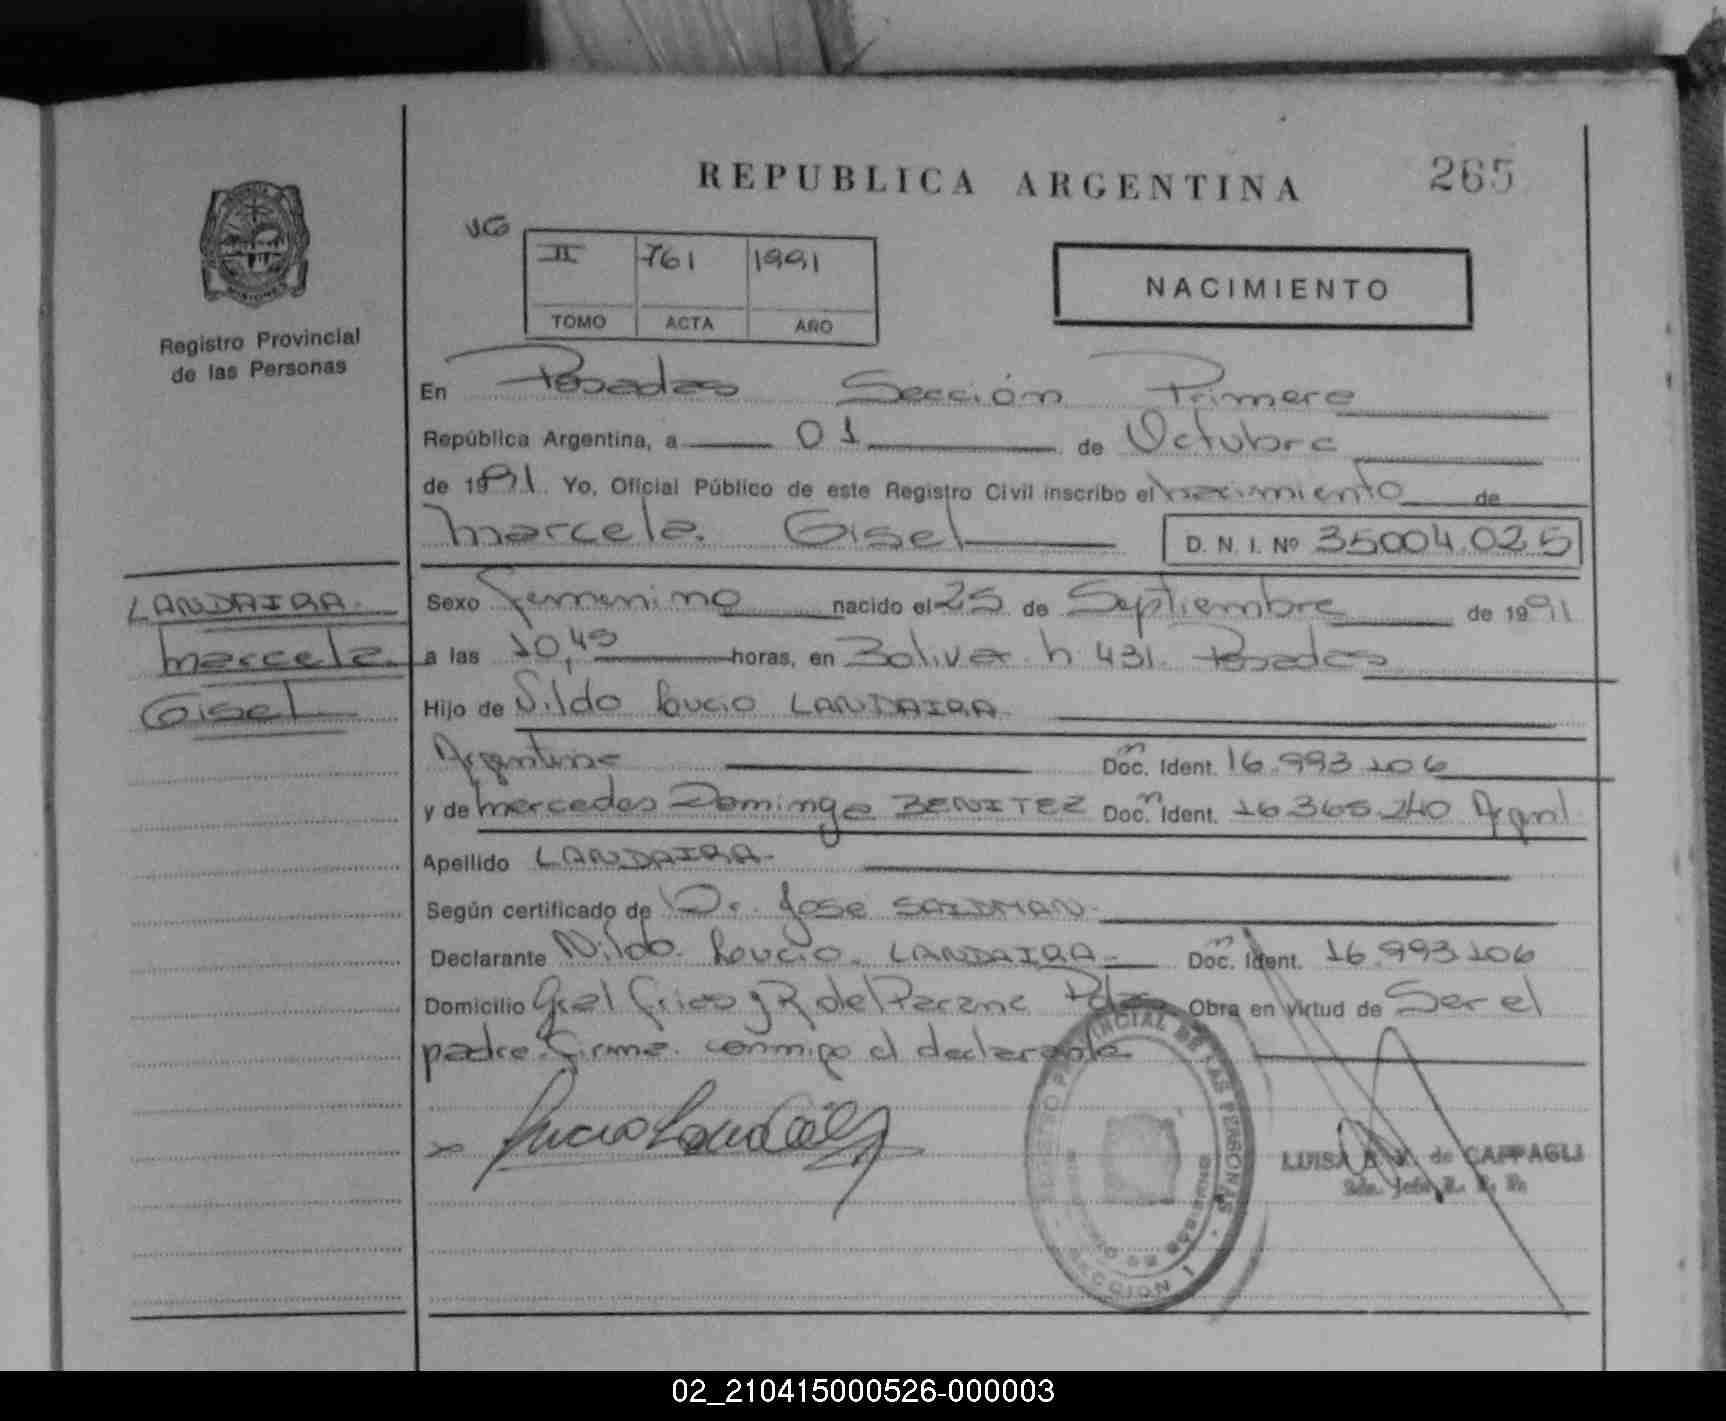 REPUBLICA ARGENTINA 265
VG
II 761 1991
TOMO ACTA AÑO
NACIMIENTO
MISIONES
Registro Provincial
de las Personas
En Posadas Sección Primera
República Argentina, a 01 de Octubre
de 1991. Yo, Oficial Público de este Registro Civil inscribo el nacimiento de
Marcela Gisel D. N. I. Nº 35004.025
LANDAIRA
Marcela
Gisel
Sexo femenino nacido el 25 de Septiembre de 1991
a las 10,45 horas, en Bolivar n 431 Posadas
Hijo de Nildo Lucio LANDAIRA
Argentino Doc. Ident. 16.993.106
y de Mercedes Dominga BENITEZ Doc. Ident. 16.365.240 Argent
Apellido LANDAIRA
Según certificado de Dr. Jose SAIDMAN
Declarante Nildo Lucio LANDAIRA Doc. Ident. 16.993.106
Domicilio Gral Frias y R del Parana Pdas Obra en virtud de Ser el
padre. Firma conmigo el declarante
REGISTRO PROVINCIAL DE LAS PERSONAS
SECCION I
LUISA de CAPPAGLI
02_210415000526-000003